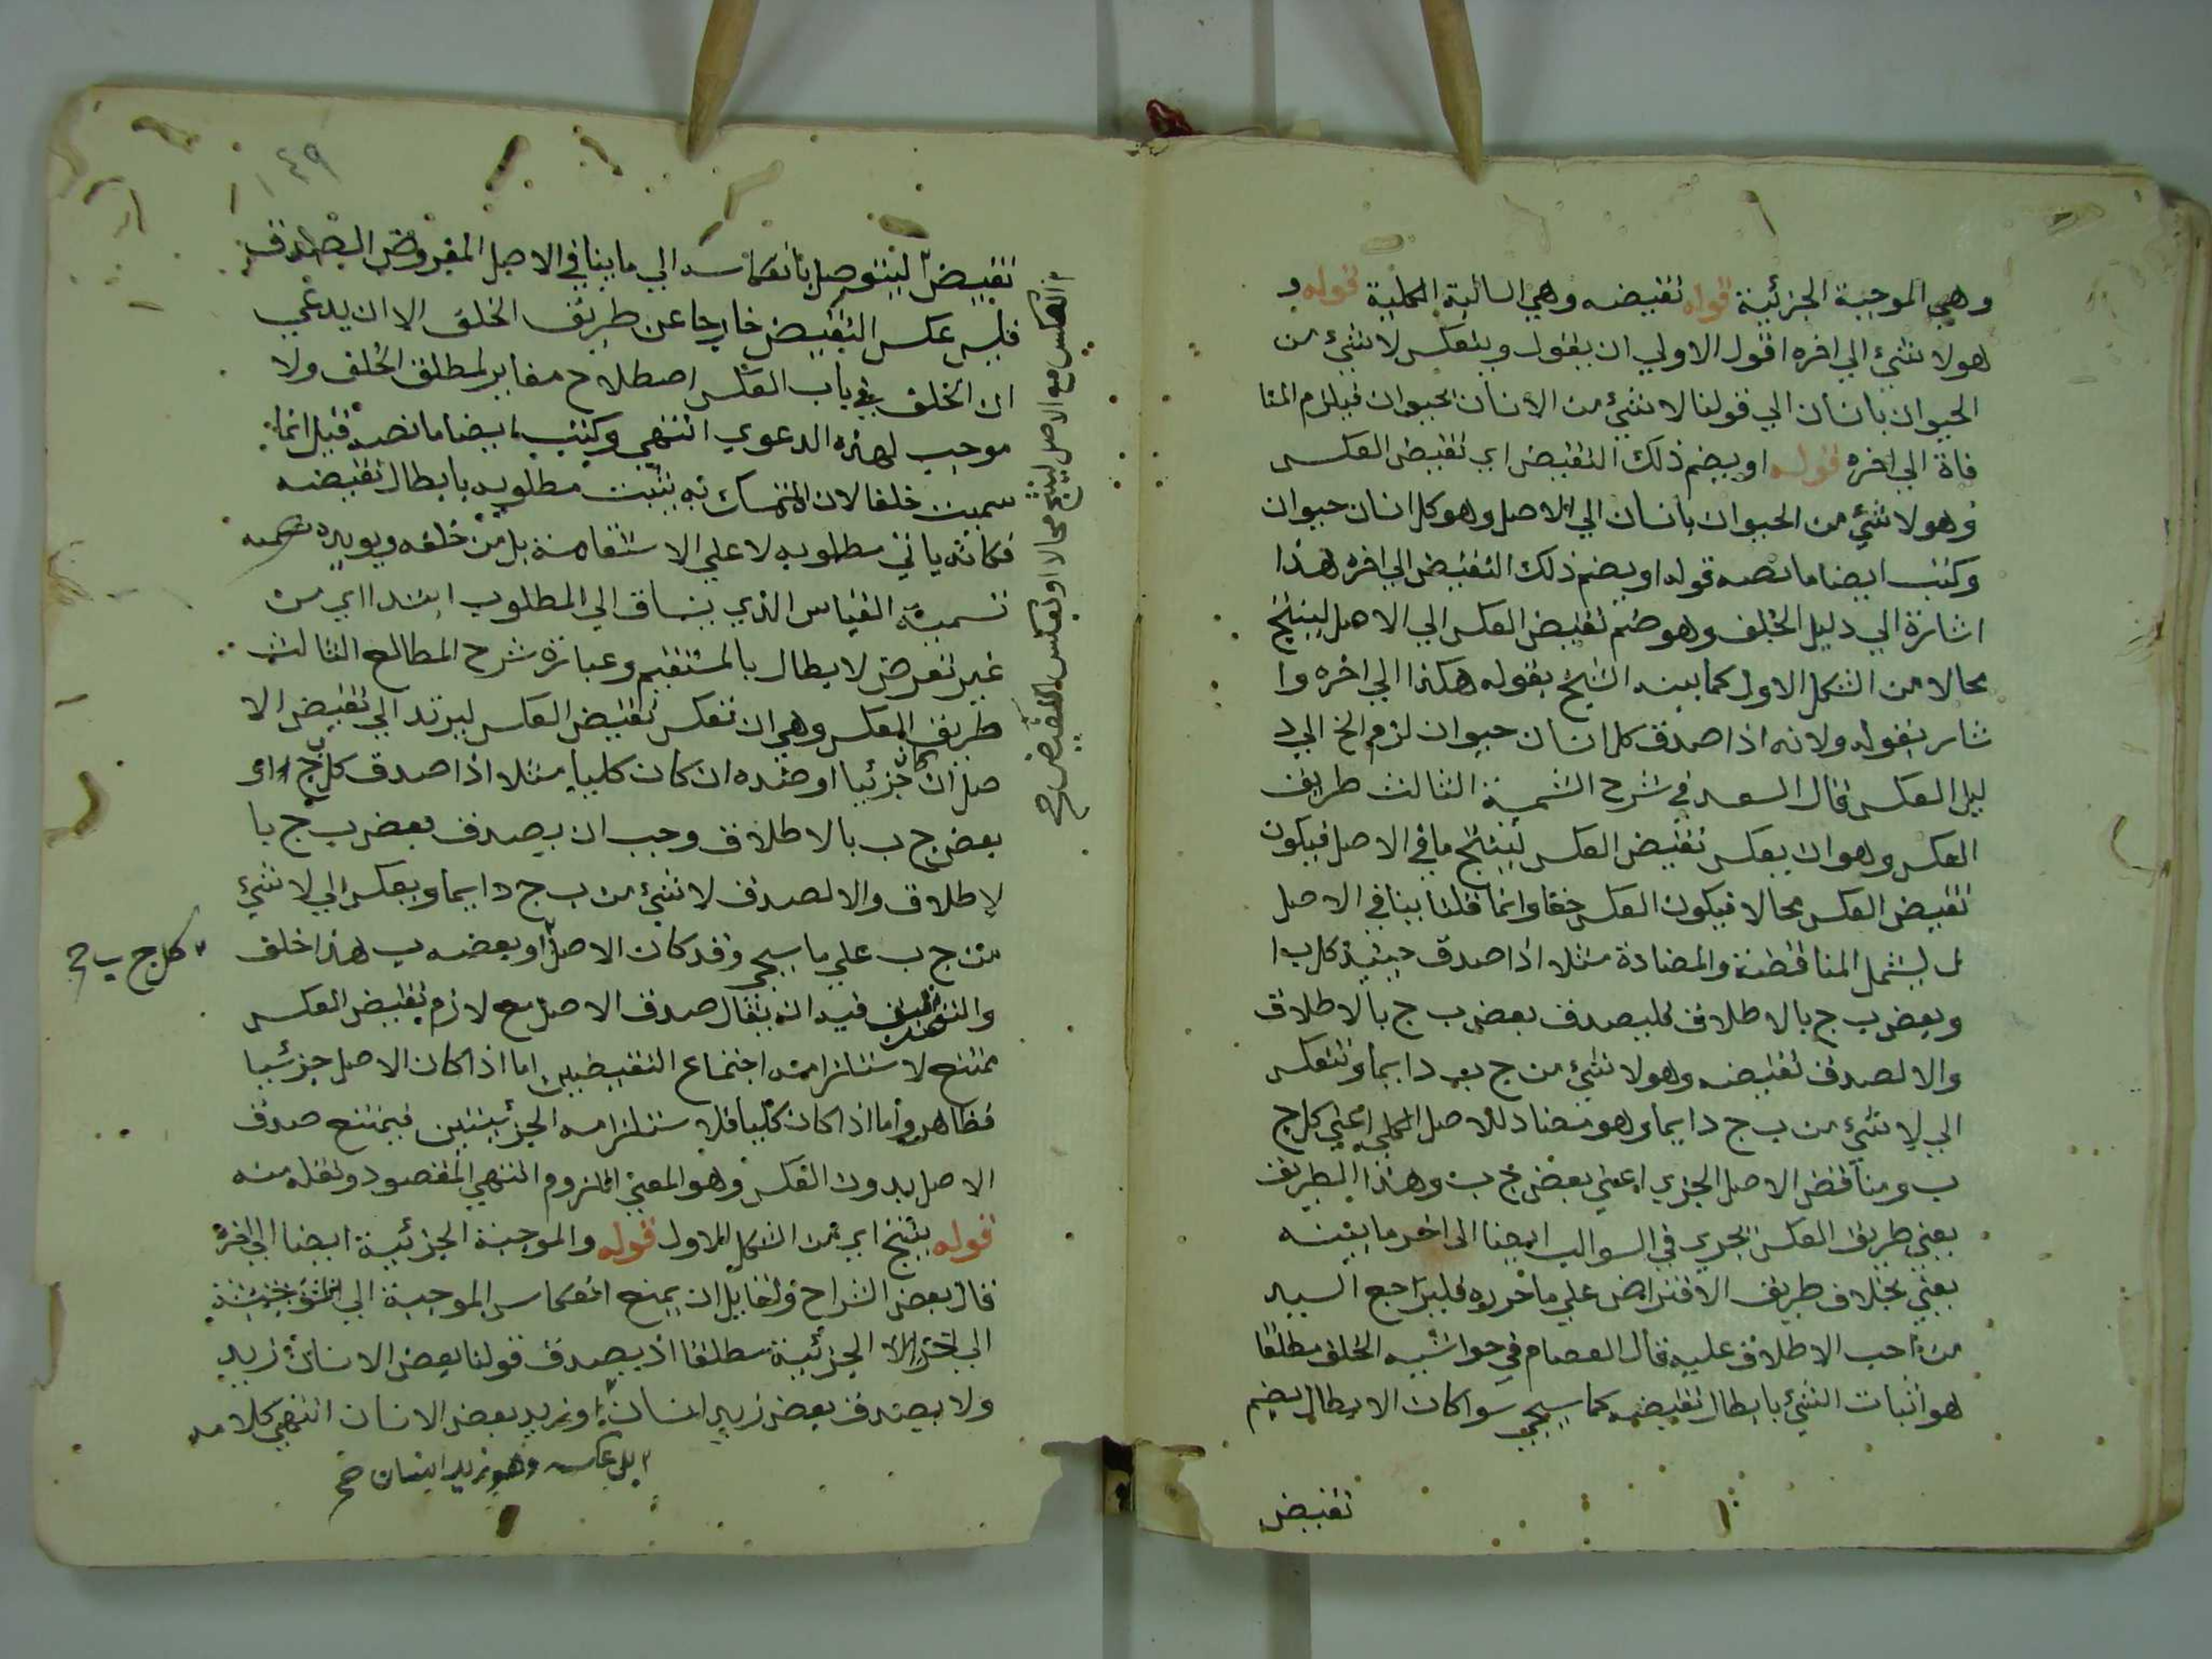 وهي الموجبة الجزئية قوله نقيضه وهي السالبة الكلية قوله و
هو لا شيء الي اخره اقول الاولي ان يقول وينعكس لا شيء من
الحيوان بانسان الي قولنا لا شيء من الانسان بحيوان فيلزم المنا
فاة الي اخره قوله او يضم ذلك النقيض اي نقيض العكس
وهو لا شيء من الحيوان بانسان الي الاصل وهو كل انسان حيوان
وكتب ايضا ما نصه قوله او يضم ذلك النقيض الي اخره هذا
اشارة الي دليل الخلف وهو ضم نقيض العكس الي الاصل لينتج
محالا من الشكل الاول كما بينه الشيخ بقوله هكذا الي اخره وا
شار بقوله ولانه اذا صدق كل انسان حيوان لزم الخ الي د
ليل العكس قال السعد في شرح الشمسية الثالث طريق
العكس وهو ان يعكس نقيض العكس لينتج ما في الاصل فيكون
نقيض العكس محالا فيكون العكس حقا وانما قلنا ينافي الاصل
ل يشمل المناقضة والمضادة مثلا اذا صدق حينئذ كل ب ا
وبعض ب ج بالاطلاق فليصدق بعض ب ج بالاطلاق
والا لصدق نقيضه وهو لا شيء من ج ب دايما وتنعكس
الي لا شيء من ب ج دايما وهو مضاد للاصل الكلي اعني كل ج
ب ومناقض الاصل الجزي اعني بعض ج ب وهذا الطريق
يعني طريق العكس يجري في السوالب ايضا الى اخر ما بينه
يعني بخلاف طريق الافتراض علي ما حرروه فليراجع السيد
من احب الاطلاق عليه قال العصام في حواشيه الخلف مطلقا
هو اثبات الشيء بابطال نقيضه كما سيجي سوا كان الابطال بضم
نقيض
١٤٩
نقيض ليتوصل بانعكاسه الي ما ينافي الاصل المفروض الصدق
فليس عكس النقيض خارجا عن طريق الخلف الا ان يدعي
ان الخلف في باب العكس اصطلاح مغاير لمطلق الخلف ولا
موجب لهذه الدعوي انتهي وكتب ايضا ما نصه قيل انما
سميت خلفا لان المتمسك به يثبت مطلوبه بابطال نقيضه
فكانه ياتي مطلوبه لا علي الاستقامة بل من خلفه ويويده
تسمية القياس الذي ينساق الي المطلوب ابتدا اي من
غير تعرض لابطال بالمستقيم وعبارة شرح المطالع الثالث
طريق العكس وهي ان تعكس نقيض العكس ليرتد الي نقيض الا
صل ان كان جزئيا او ضده ان كان كليا مثلا اذا صدق كل ج او
بعض ج ب بالاطلاق وجب ان يصدق بعض ب ج با
لاطلاق والا لصدق لا شيء من ب ج دايما وبعكس الي لا شيء
من ج ب علي ما سيجي وقد كان الاصل او بعضه ب هذا خلف
كل ج ب صح
والتحقيق فيه انه يقال صدق الاصل مع لازم نقيض العكس
ممتنع لاستلزامه اجتماع النقيضين اما اذا كان الاصل جزئيا
فظاهر واما اذا كان كليا فلاستلزامه الجزئيتين فيمتنع صدق
الاصل بدون العكس وهو المعني اللزوم انتهي المقصود ونقله منه
قوله ينتج اي من الشكل الاول قوله والموجبة الجزئية ايضا الي اخره
قال بعض الشراح ولقايل ان يمنع انعكاس الموجبة
الي الجزئية مطلقا اذ يصدق قولنا بعض الانسان زيد
ولا يصدق بعض زيد انسان او زيد بعض الانسان انتهي كلامه
بل عكسه وهو زيد انسان صح
العكس مع الاصل لينتج محالا او بعكس النقيض صح